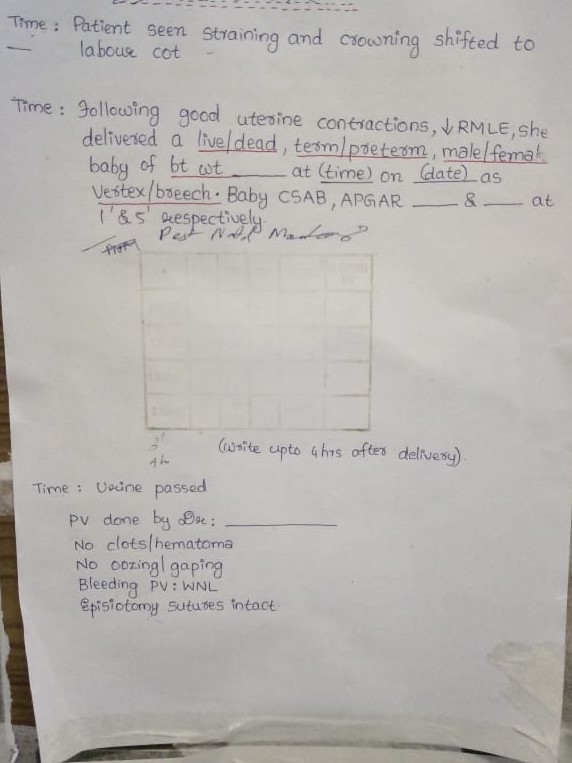 Time : Patient seen straining and crowning shifted to
labour cot
Time : Following good uterine contractions, ↓ RMLE, she
delivered a live/dead, term/preterm, male/femal
baby of bt wt ____ at (time) on (date) as
Vertex/breech. Baby CSAB, APGAR ____ & ____ at
1' & 5' respectively.
Post
4h
(write upto 4hrs after delivery).
Time : Urine passed
PV done by Dr: ____
No clots/hematoma
No oozing/gaping
Bleeding PV : WNL
Episiotomy sutures intact